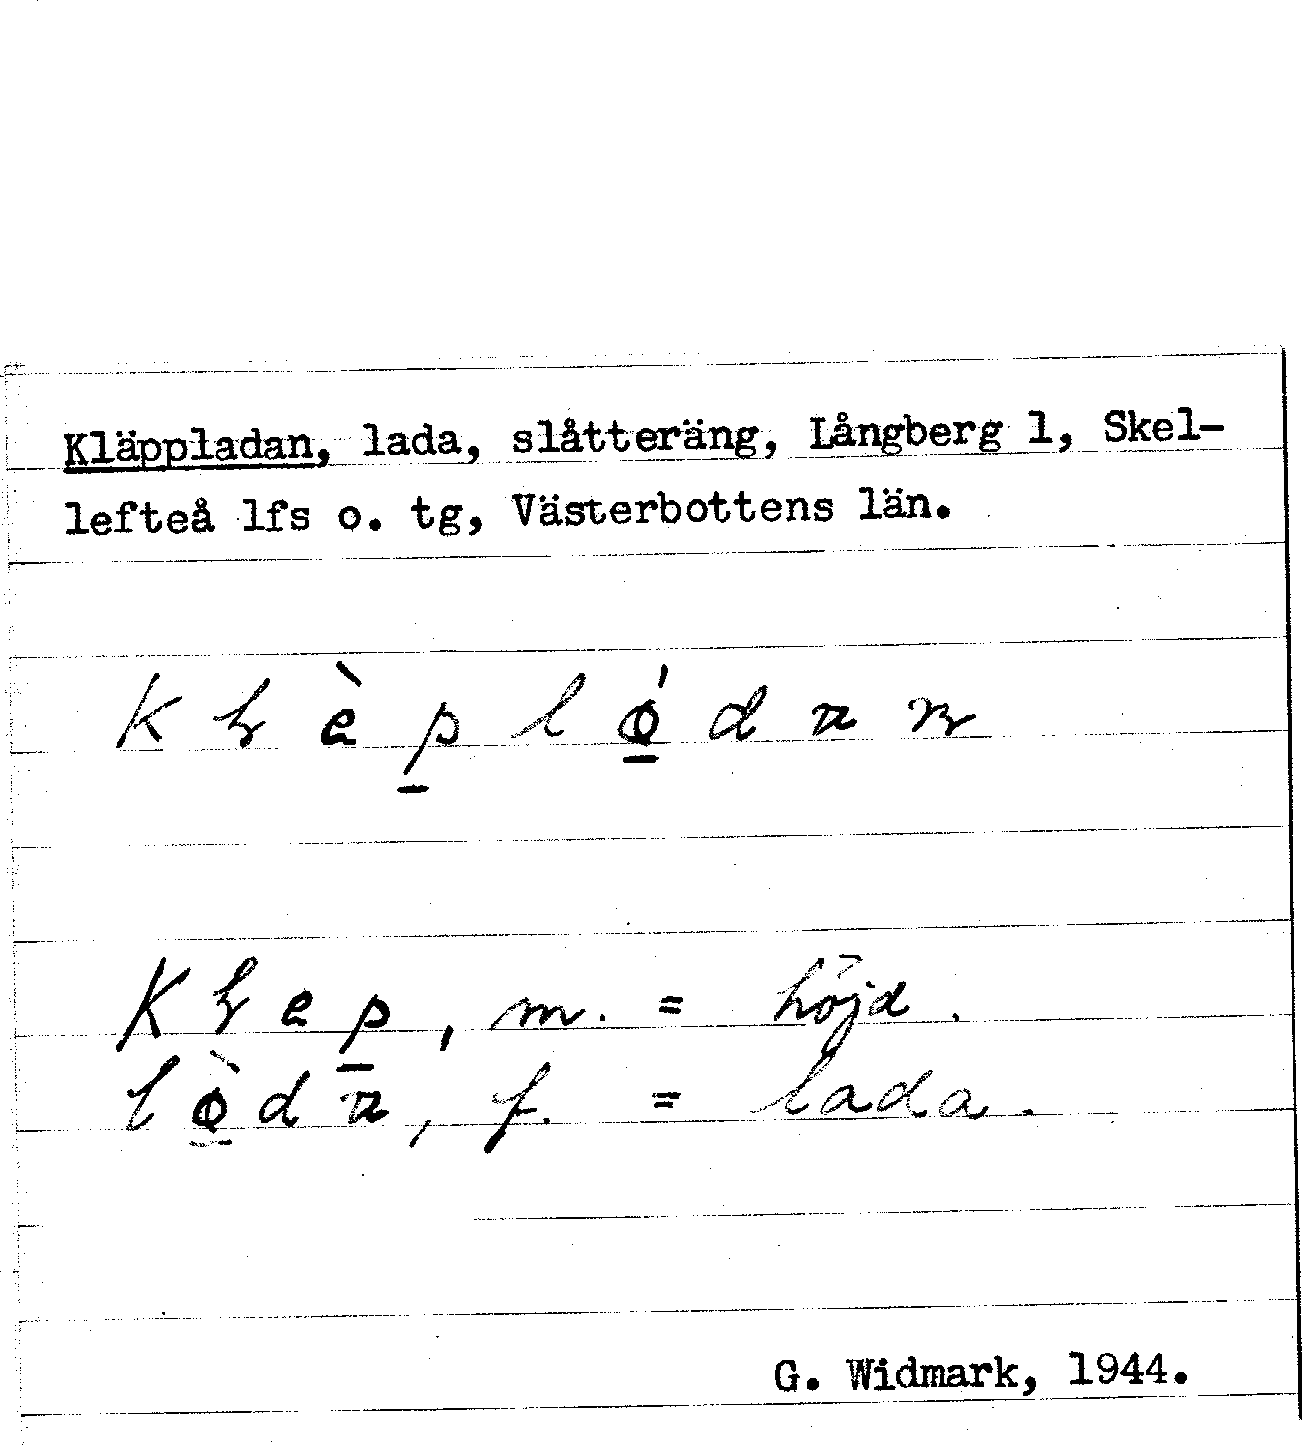 Kläppladan, lada, slåtteräng, Långberg 1, Skel-
lefteå lfs o. tg, Västerbottens län.
, m. = höjd.
, f. = lada.
G. Widmark, 1944.